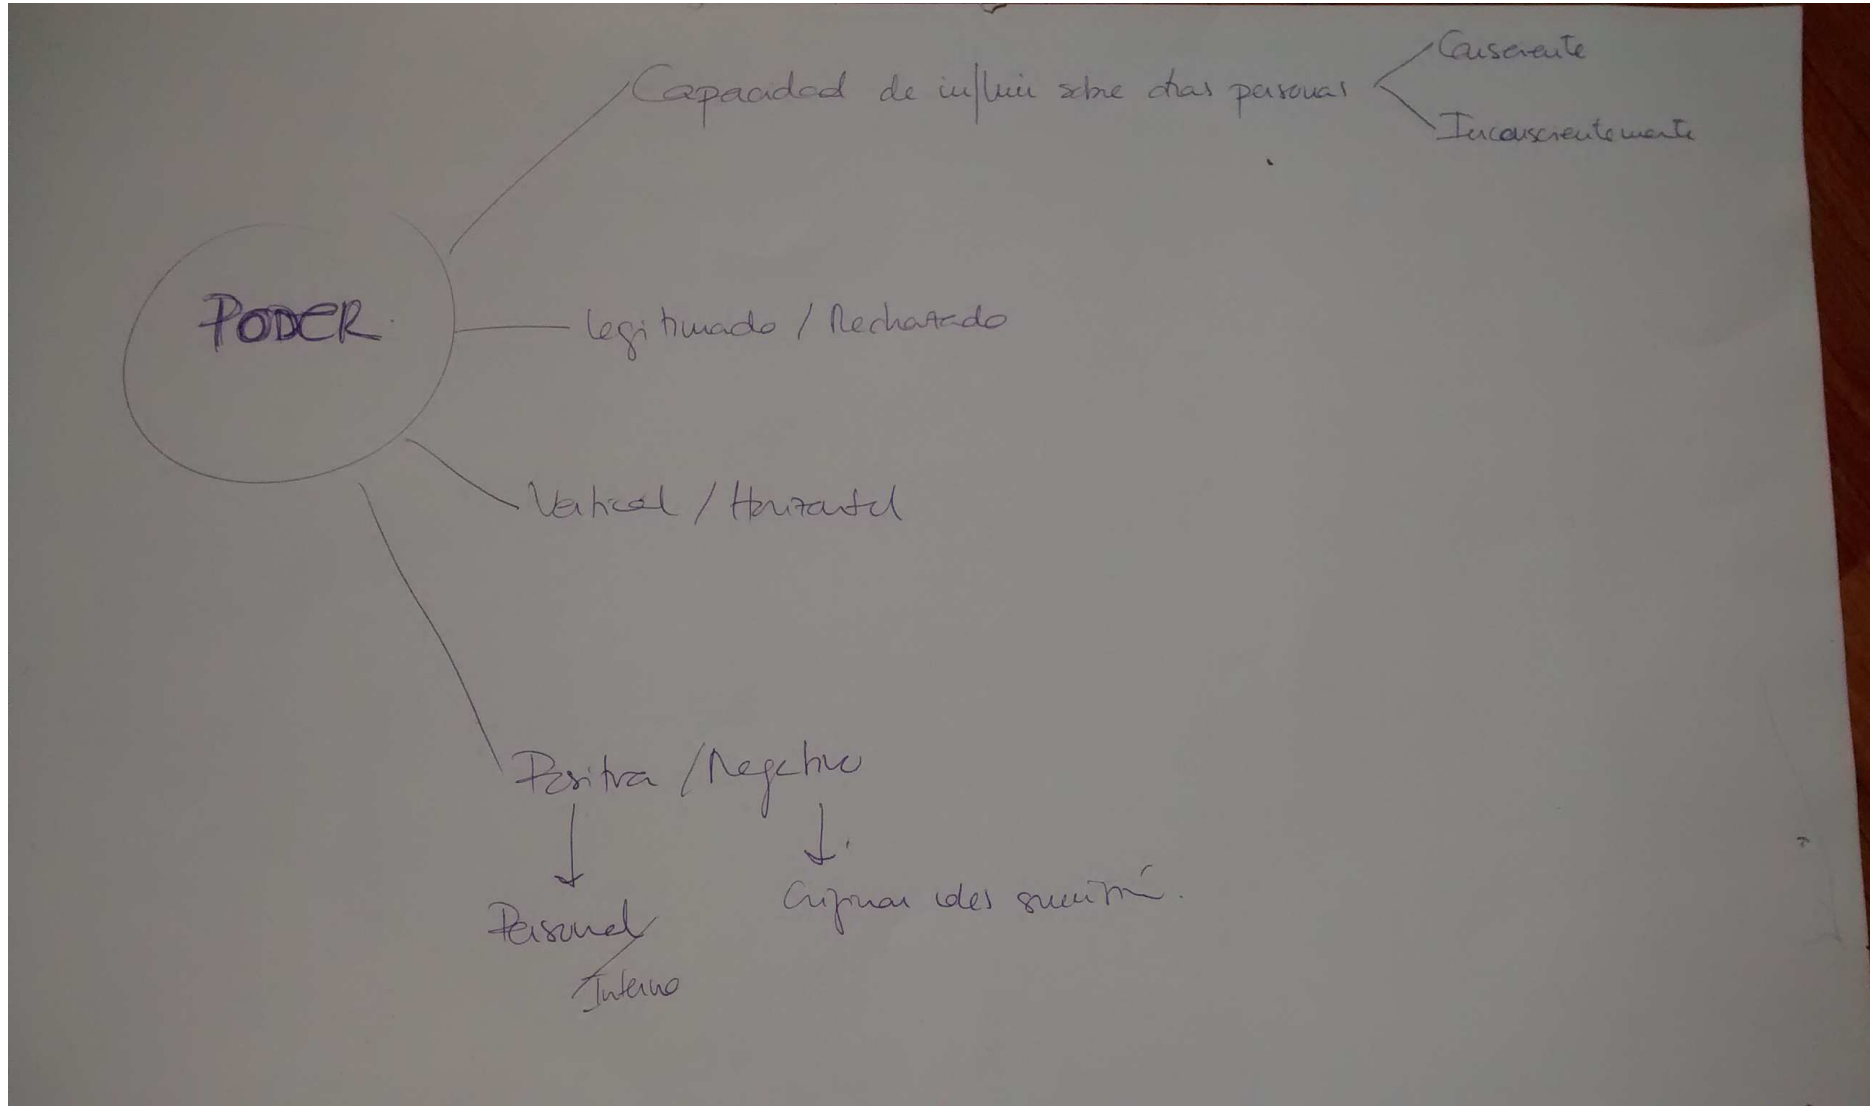 Consciente
Capacidad de influir sobre otras personas
Inconscientemente
PODER
Legitimado / Rechazado
Vertical / Horizontal
Positiva / Negativo
Personal
Interno